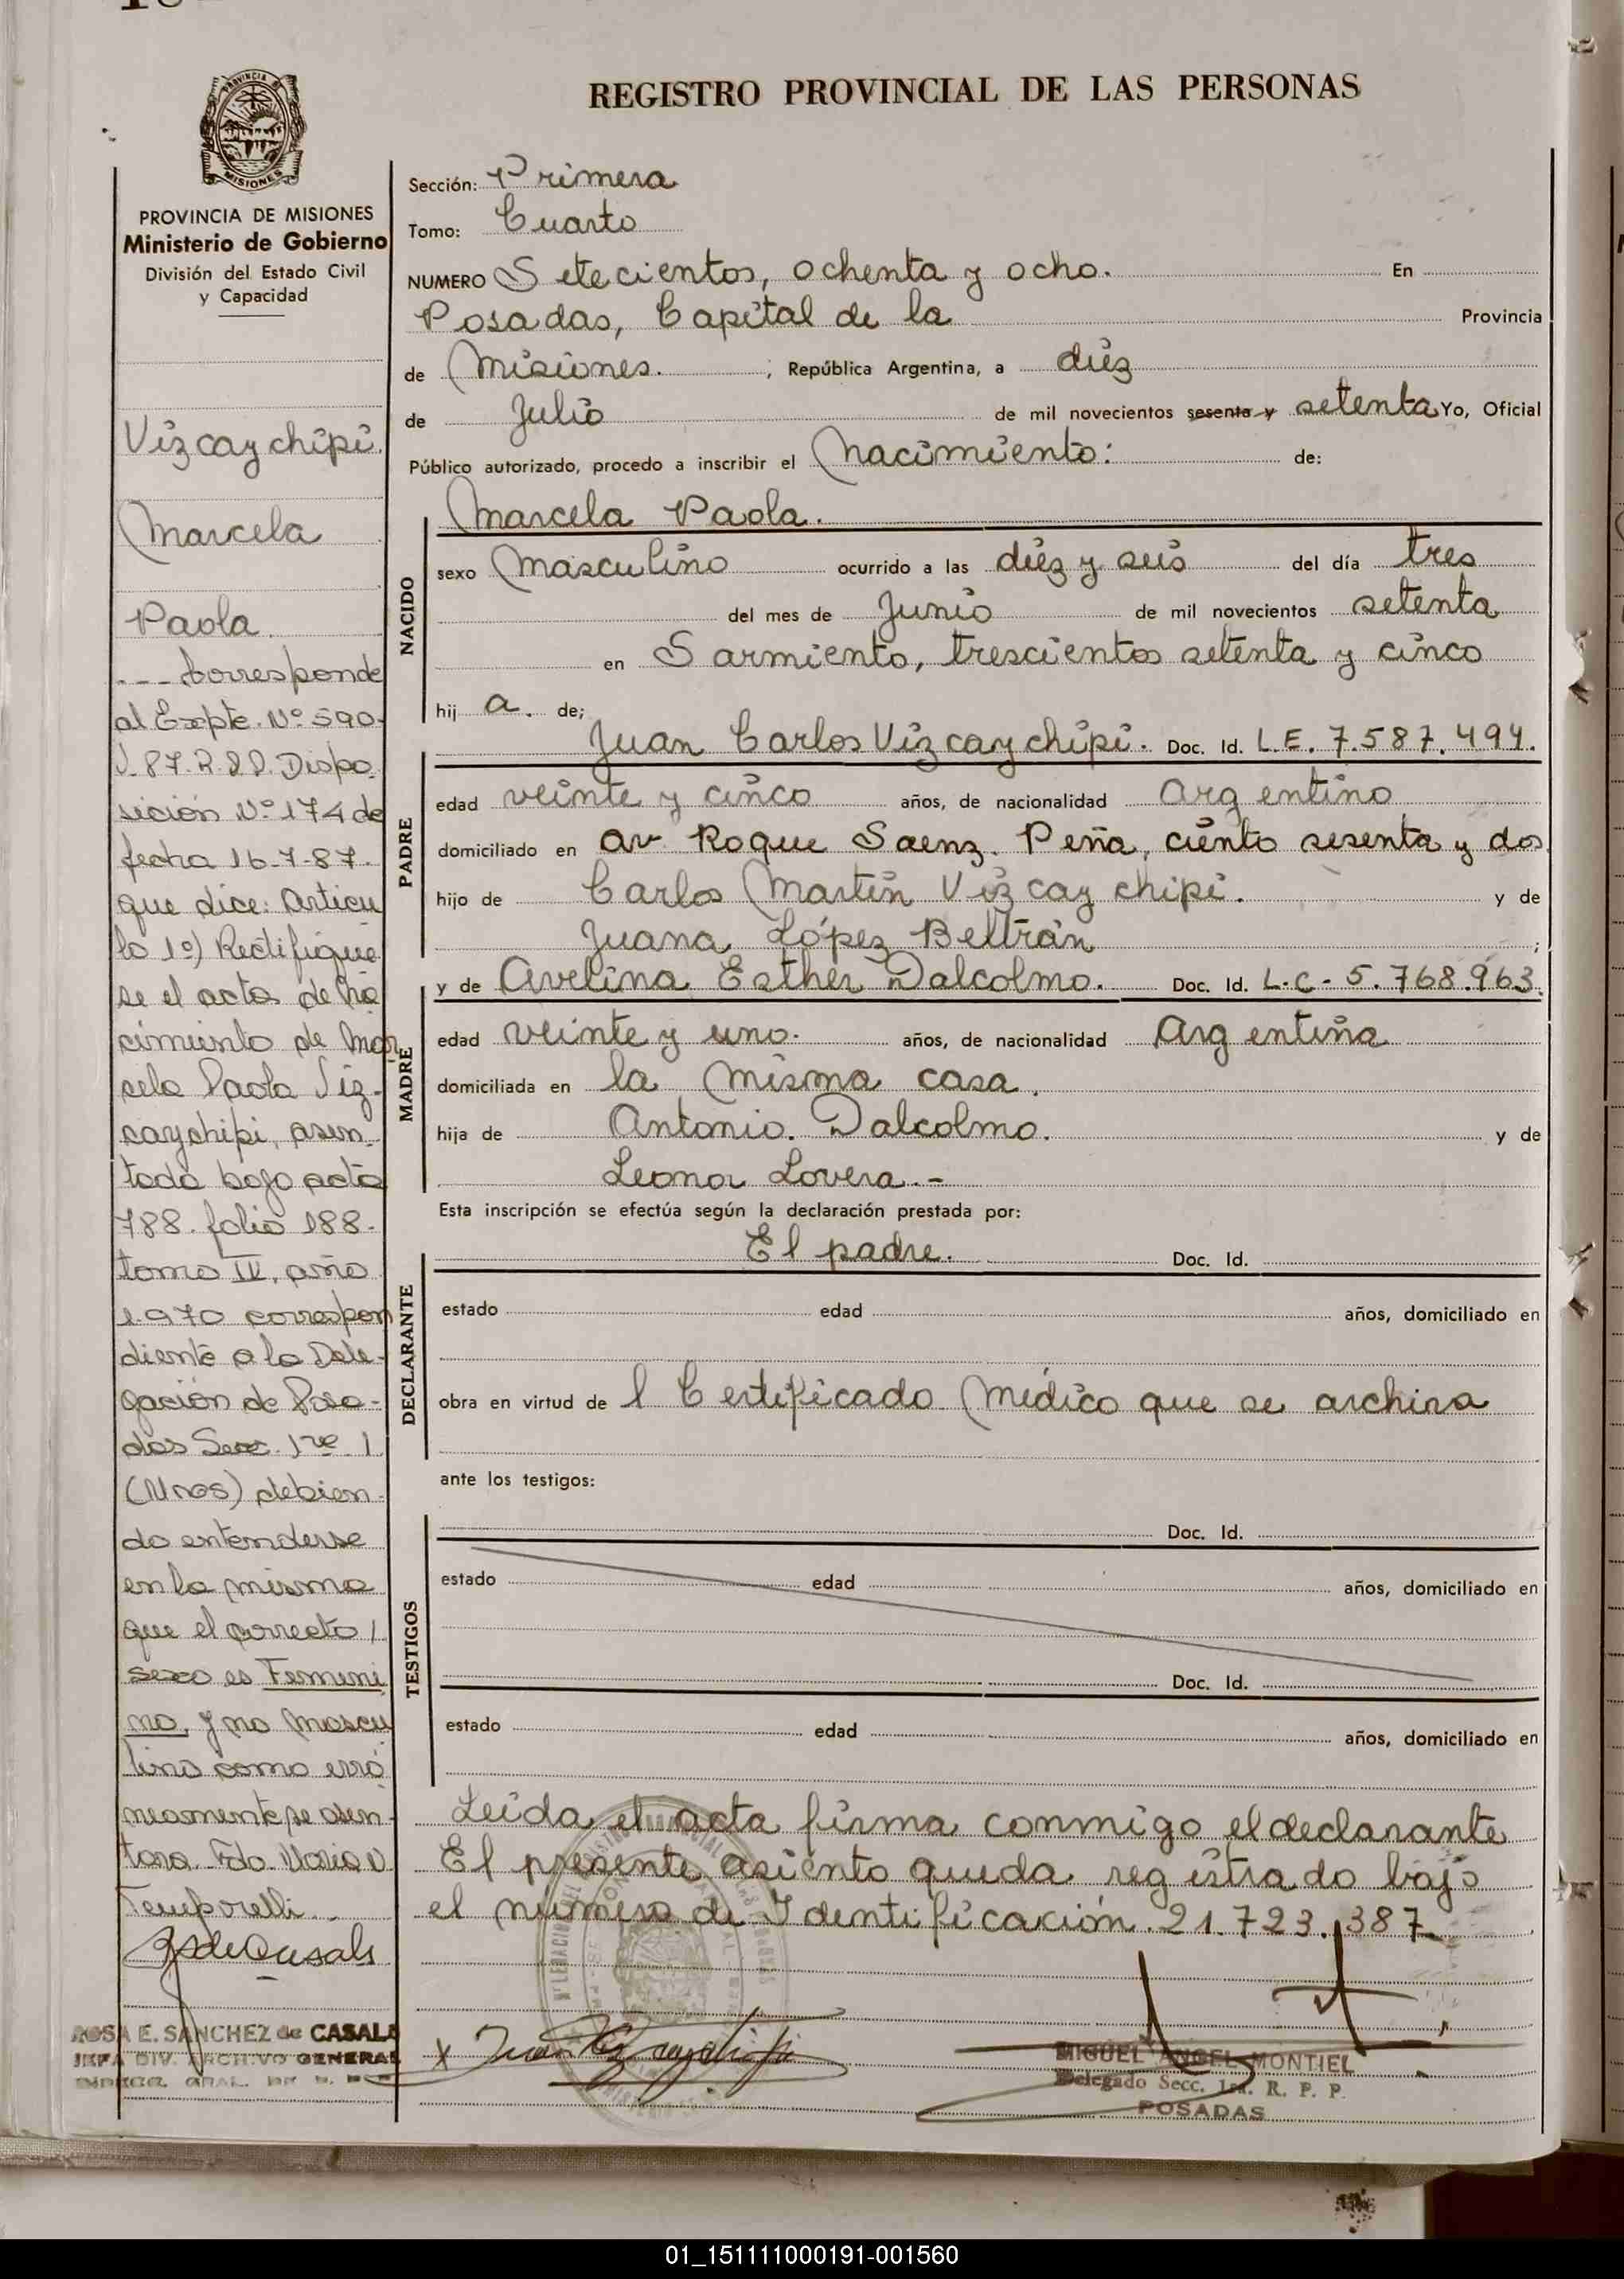 REGISTRO PROVINCIAL DE LAS PERSONAS
PROVINCIA
MISIONES
PROVINCIA DE MISIONES
Ministerio de Gobierno
División del Estado Civil
y Capacidad
Vizcaychipi.
Marcela
Paola.
--- Corresponde
al Expte. Nº 590-
87. Dispo
sición Nº 174 de
fecha 16-7-87.
que dice: Articu
lo 1º) Rectifique
se el acta de Na
cimiento de Mar
cela Paola Viz-
caychipi, asen
tada bajo acta
788. folio 188.
tomo IV, año
1.970 correspon
diente a la Dele-
gación de Posa-
das Secc. 1ra 1
debien-
do entenderse
en la misma
que el correcto /
sexo es Femeni
no, y no Mascu
lino como erró
neamente se asen-
tara. Fdo.
Temporelli.
ROSA E. SANCHEZ de CASALS
JEFA DIV. ARCHIVO GENERAL
Sección: Primera
Tomo: Cuarto
NUMERO Setecientos, ochenta y ocho. En
Posadas, Capital de la Provincia
de Misiones. ; República Argentina, a diez
de Julio de mil novecientos sesenta y setenta Yo, Oficial
Público autorizado, procedo a inscribir el Nacimiento: de:
Marcela Paola.
NACIDO
sexo Masculino ocurrido a las diez y seis del día tres
del mes de Junio de mil novecientos setenta
en Sarmiento, trescientos setenta y cinco
hij a. de;
Juan Carlos Vizcaychipi. Doc. Id. L.E. 7.587.494.
PADRE
edad veinte y cinco años, de nacionalidad Argentino
domiciliado en av. Roque Saenz. Peña, ciento sesenta y dos
hijo de Carlos Martín Vizcaychipi. y de
Juana López Beltrán ;
y de Avelina Esther Dalcolmo. Doc. Id. L.C- 5.768.963.
MADRE
edad veinte y uno. años, de nacionalidad Argentina
domiciliada en la misma casa.
hija de Antonio. Dalcolmo. y de
Leonor Lovera.-
Esta inscripción se efectúa según la declaración prestada por:
El padre. Doc. Id.
DECLARANTE
estado edad años, domiciliado en
obra en virtud de l Certificado Médico que se archiva
ante los testigos:
Doc. Id.
TESTIGOS
estado edad años, domiciliado en
Doc. Id.
estado edad años, domiciliado en
Leída el acta firma conmigo el declarante
El presente asiento queda registrado bajo
el número de Identificación. 21.723.387
x Juan Vizcaychipi
MIGUEL ANGEL MONTIEL
Delegado Secc. 1ra. R. P. P.
POSADAS
01_151111000191-001560